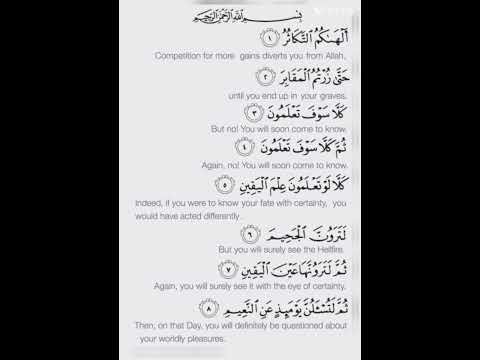 بِسْمِ ٱللَّهِ ٱلرَّحْمَٰنِ ٱلرَّحِيمِ
أَلْهَىٰكُمُ ٱلتَّكَاثُرُ ١
Competition for more gains diverts you from Allah,
حَتَّىٰ زُرْتُمُ ٱلْمَقَابِرَ ٢
until you end up in your graves.
كَلَّا سَوْفَ تَعْلَمُونَ ٣
But no! You will soon come to know.
ثُمَّ كَلَّا سَوْفَ تَعْلَمُونَ ٤
Again, no! You will soon come to know.
كَلَّا لَوْ تَعْلَمُونَ عِلْمَ ٱلْيَقِينِ ٥
Indeed, if you were to know your fate with certainty, you
would have acted differently.
لَتَرَوُنَّ ٱلْجَحِيمَ ٦
But you will surely see the Hellfire.
ثُمَّ لَتَرَوُنَّهَا عَيْنَ ٱلْيَقِينِ ٧
Again, you will surely see it with the eye of certainty.
ثُمَّ لَتُسْـَٔلُنَّ يَوْمَئِذٍ عَنِ ٱلنَّعِيمِ ٨
Then, on that Day, you will definitely be questioned about
your worldly pleasures.